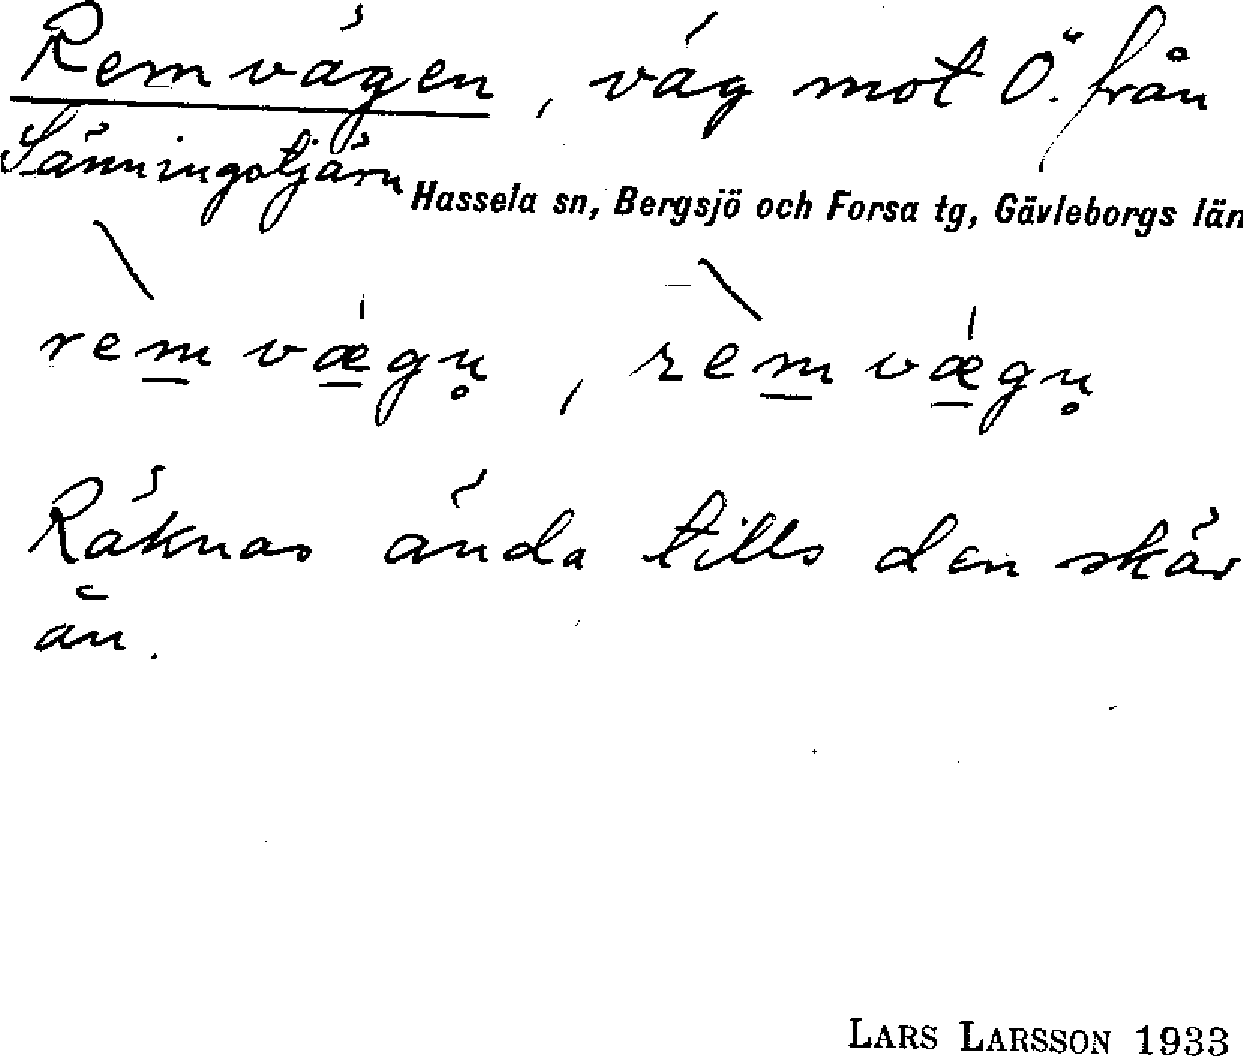 Remvägen, väg mot Ö. från
Sänningstjärn
Hassela sn, Bergsjö och Forsa tg, Gävleborgs län
re̱m væ̱gn̥, re̱m væ̱gn̥
Räknas ända tills den skär
ån.
LARS LARSSON 1933